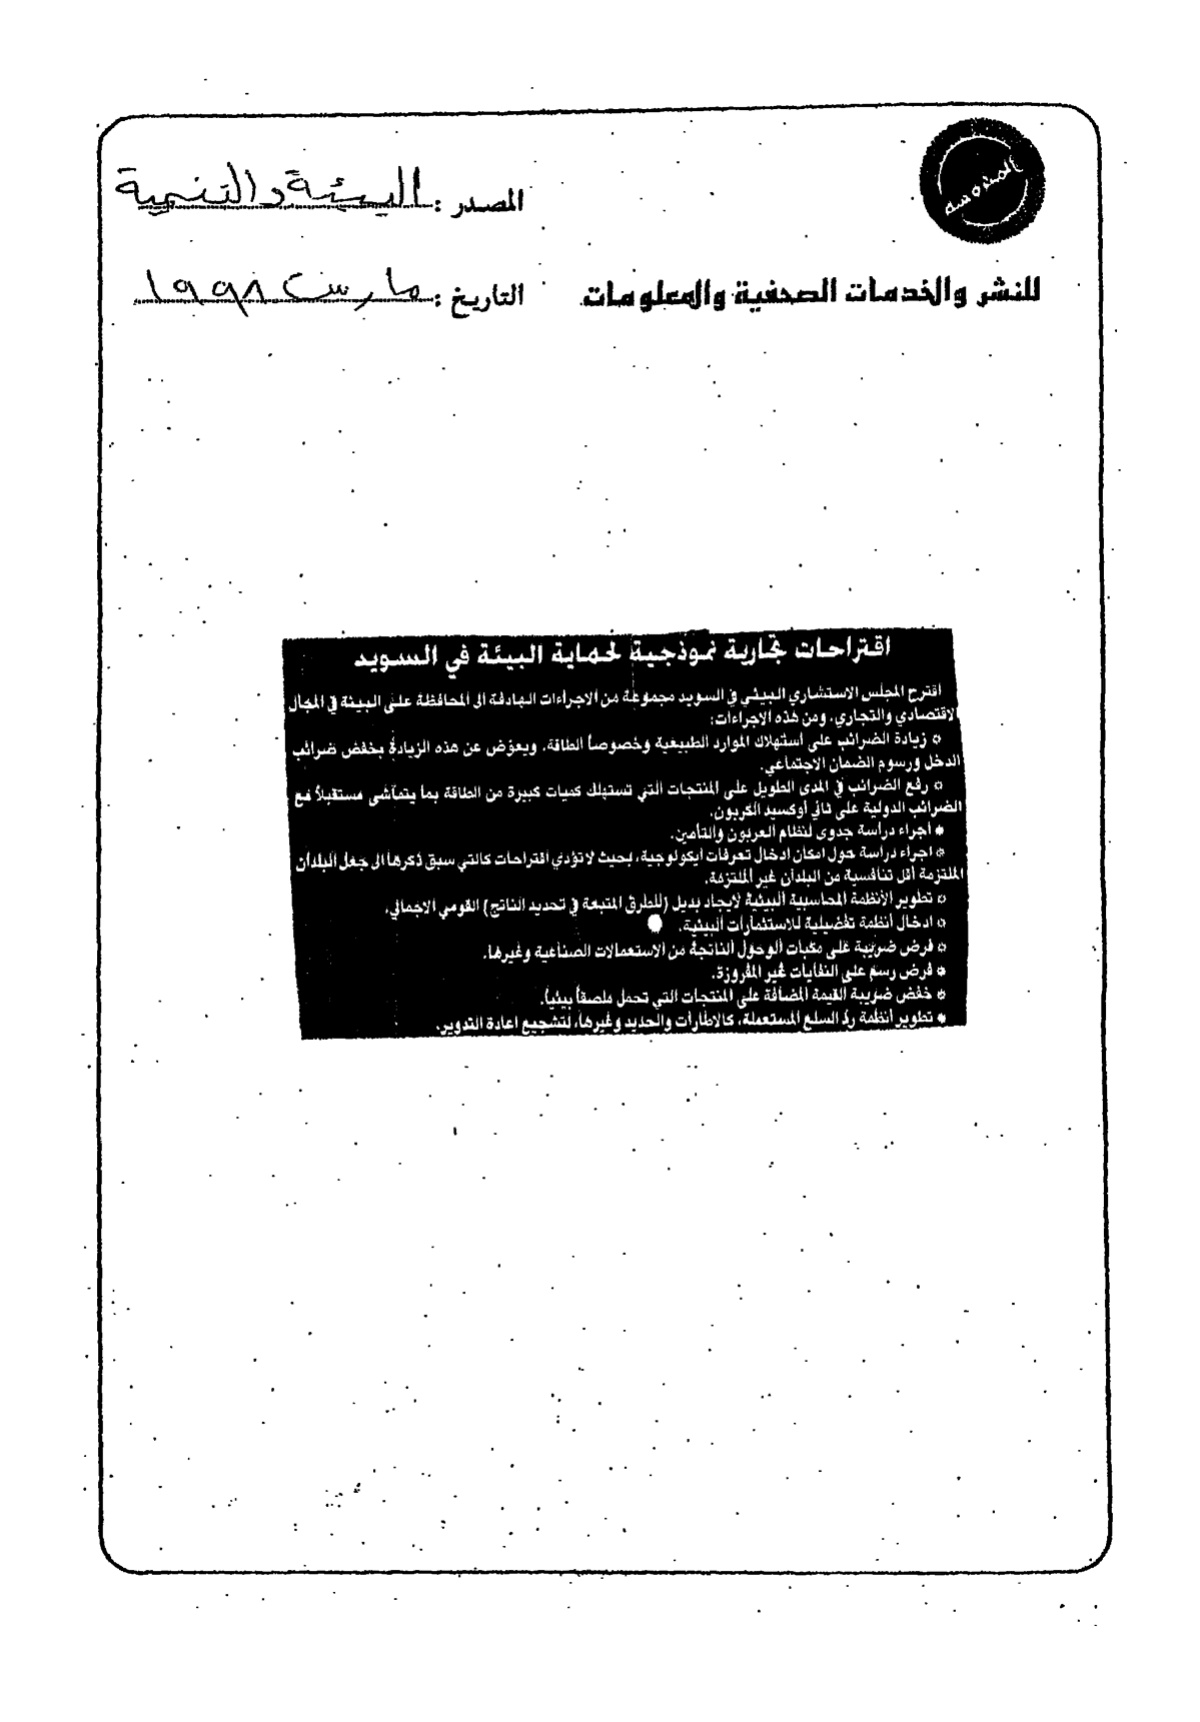 المصدر : البيئة والتنمية
للنشر والخدمات الصحفية والمعلومات
التاريخ : مارس ١٩٩٨
اقتراحات تجارية نموذجية لحماية البيئة في السويد
اقترح المجلس الاستشاري البيئي في السويد مجموعة من الاجراءات الهادفة الى المحافظة على البيئة في المجال
الاقتصادي والتجاري. ومن هذه الاجراءات:
* زيادة الضرائب على استهلاك الموارد الطبيعية وخصوصاً الطاقة، ويعوّض عن هذه الزيادة بخفض ضرائب
الدخل ورسوم الضمان الاجتماعي.
* رفع الضرائب في المدى الطويل على المنتجات التي تستهلك كميات كبيرة من الطاقة بما يتماشى مستقبلاً مع
الضرائب الدولية على ثاني أوكسيد الكربون.
* اجراء دراسة جدوى لنظام العربون والتأمين.
* اجراء دراسة حول امكان ادخال تعرفات ايكولوجية، بحيث لا تؤدي اقتراحات كالتي سبق ذكرها الى جعل البلدان
الملتزمة أقل تنافسية من البلدان غير الملتزمة.
* تطوير الأنظمة المحاسبية البيئية لايجاد بديل (للطرق المتبعة في تحديد الناتج) القومي الاجمالي.
* ادخال أنظمة تفضيلية للاستثمارات البيئية.
* فرض ضريبة على مكبات الوحول الناتجة من الاستعمالات الصناعية وغيرها.
* فرض رسم على النفايات غير المفروزة.
* خفض ضريبة القيمة المضافة على المنتجات التي تحمل ملصقاً بيئياً.
* تطوير أنظمة ردّ السلع المستعملة، كالاطارات والحديد وغيرها، لتشجيع اعادة التدوير.